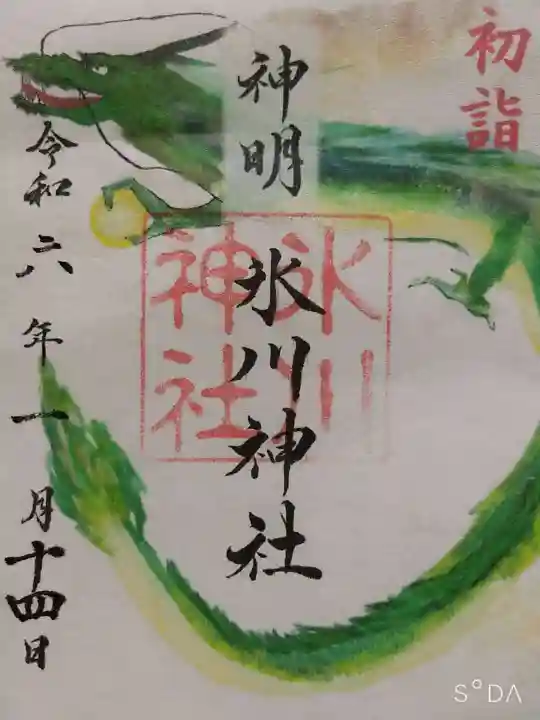 初詣
神明
氷川神社
氷川
神社
令和六年一月十四日
S°DA